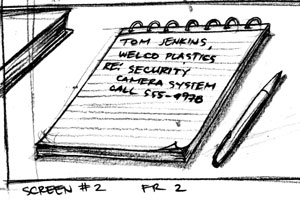 TOM JENKINS,
WELCO PLASTICS
RE: SECURITY
CAMERA SYSTEM
CALL 555-9978
SCREEN #2 FR 2